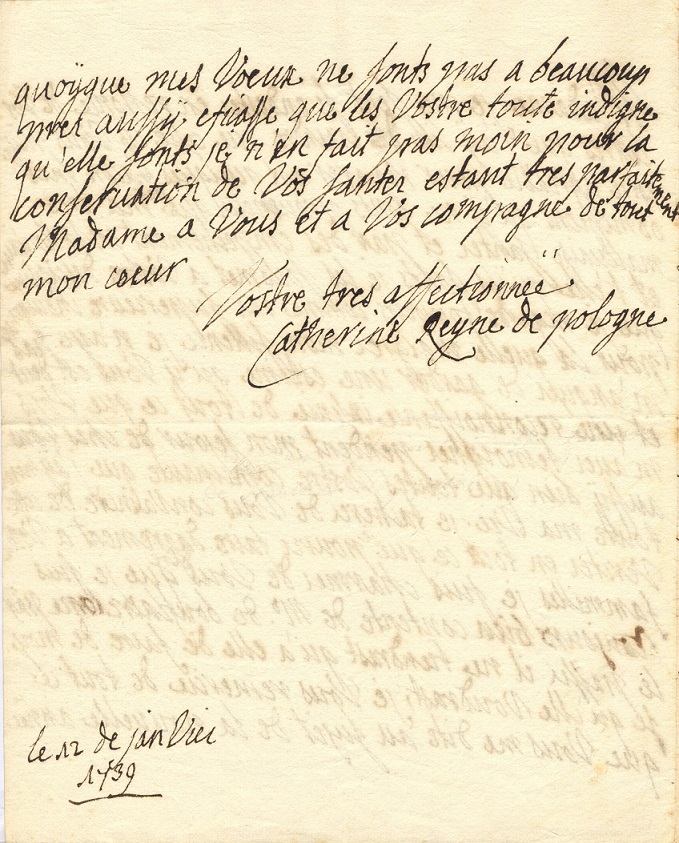 quoÿque mes Voeux ne sonts pas a beaucoup
pres aussÿ eficasse que les Vostre toute indigne
qu'elle sonts je n'en fait pas moin pour la
conservation de Vos santer estant tres parfaitement
Madame a Vous et a Vos compagne de tout
mon coeur
Vostre tres affectionnéé
Catherine Reyne de pologne
le 12 de janvier
1739